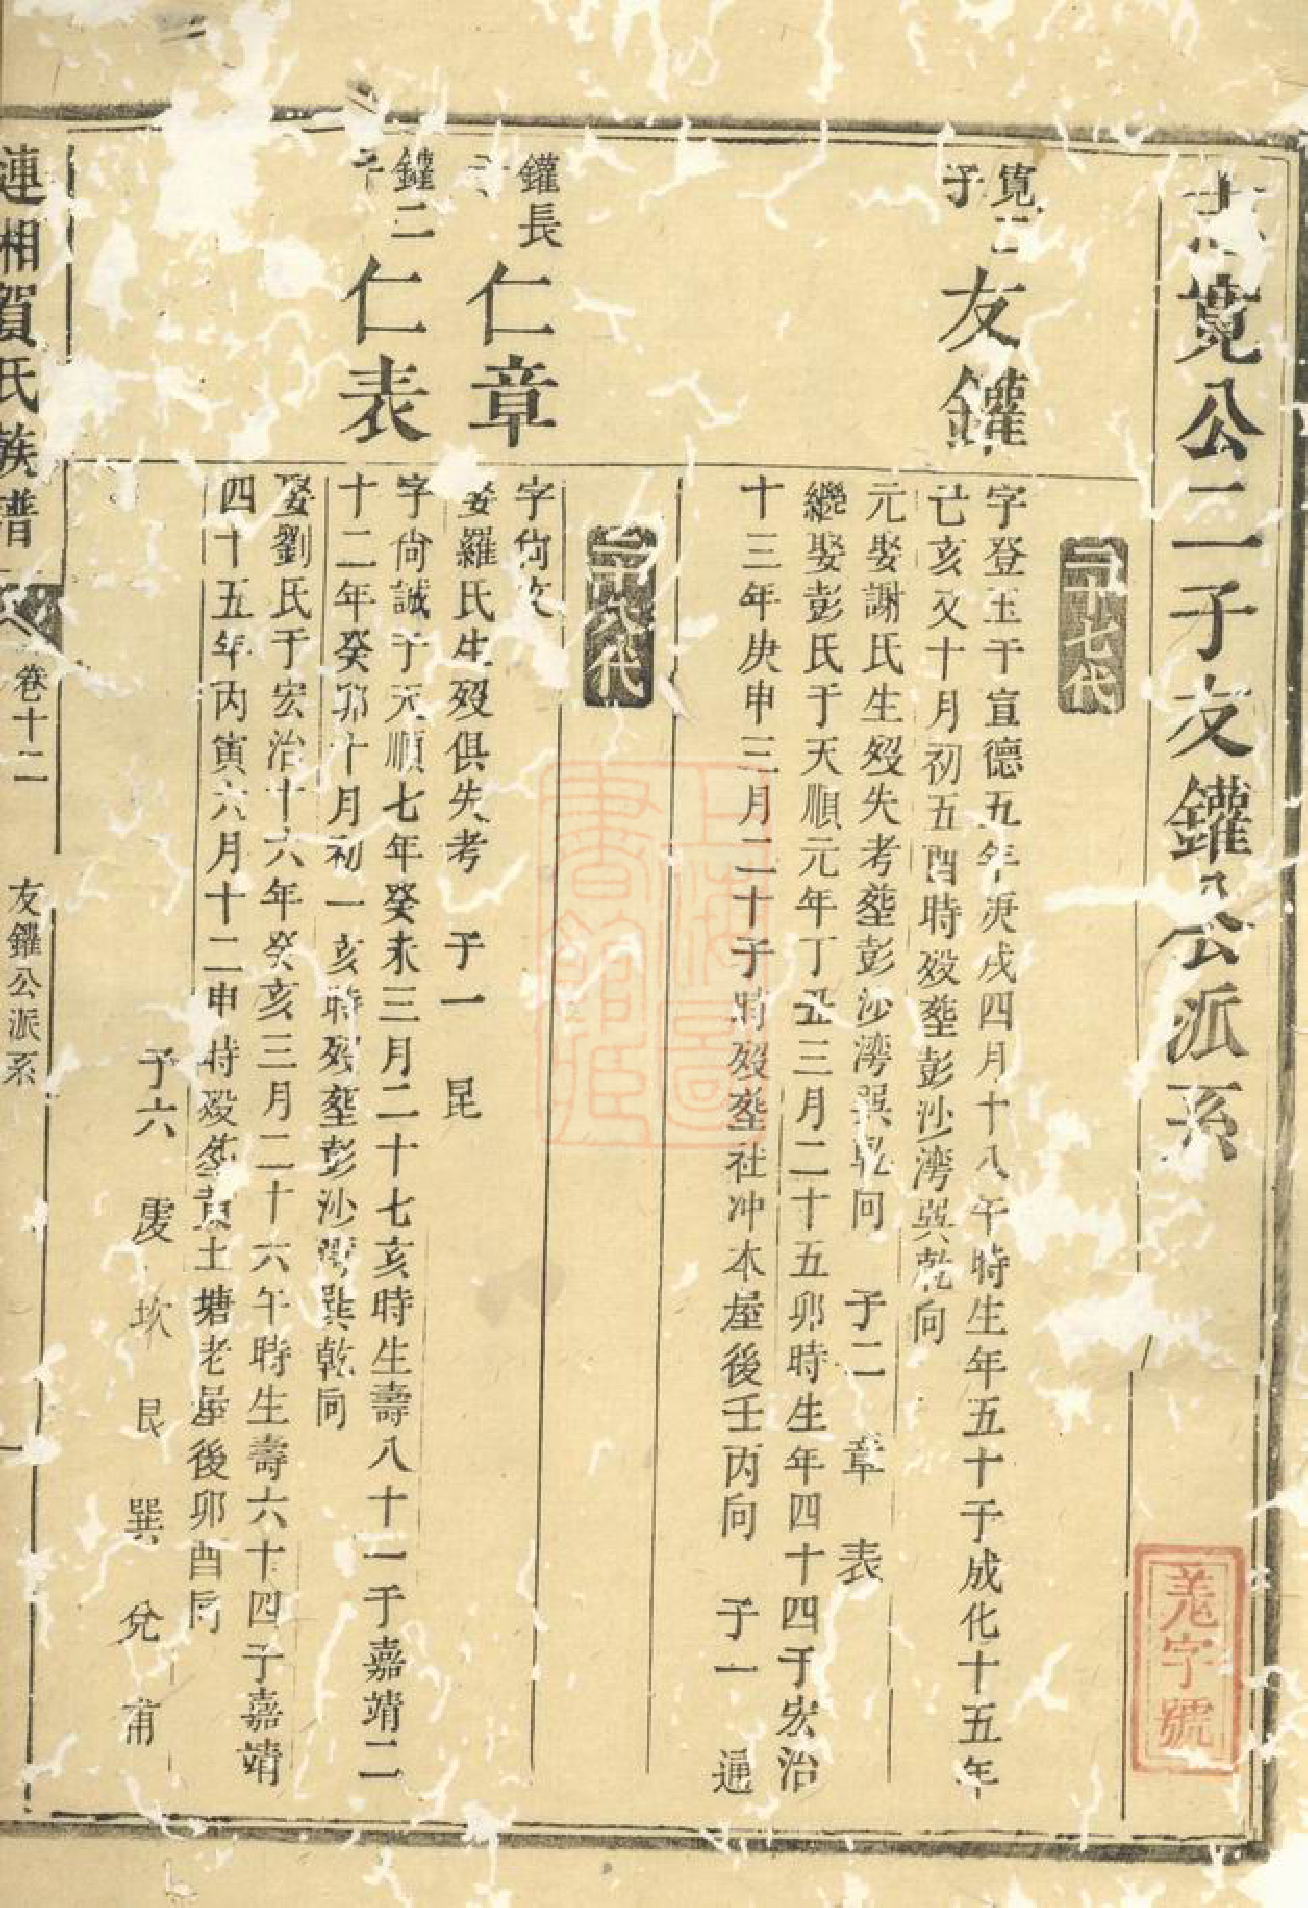 志寬公二子友鑵公派系
二十七代
寬二
子
友鑵
字登玉于宣德五年庚戌四月十八午時生年五十于成化十五年
己亥又十月初五酉時歿塟彭沙灣巽乾向
元娶謝氏生歿失考塟彭沙灣巽乾向 子二 章 表
繼娶彭氏于天順元年丁丑三月二十五卯時生年四十四于宏治
十三年庚申三月二十子時歿塟社冲本屋後壬丙向 子一 通
二十八代
鑵長
子
仁章
字尙文
娶羅氏生歿俱失考 子一 昆
鑵二
子
仁表
字尙誠于天順七年癸未三月二十七亥時生壽八十一于嘉靖二
十二年癸卯十月初一亥時歿塟彭沙灣巽乾向
娶劉氏于宏治十六年癸亥三月二十六午時生壽六十四于嘉靖
四十五年丙寅六月十二申時歿塟黃土塘老屋後卯酉向
子六 䖍 坎 艮 巽 兌 甫
漣湘賀氏族譜
卷十二
友鑵公派系
一
羌字號
上海圖書館藏